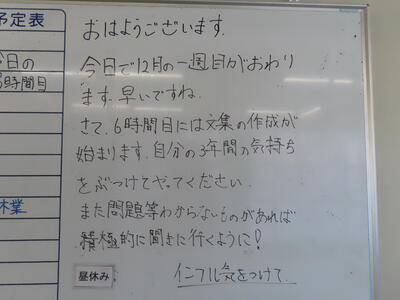 予定表
今日の
6時間目
休業
おはようございます.
今日で12月の一週目がおわり
ます.早いですね.
さて、6時間目には文集の作成が
始まります.自分の3年間の気持ち
をぶつけてやってください.
また問題等わからないものがあれば
積極的に聞きに行くように!
昼休み
インフル気をつけて.